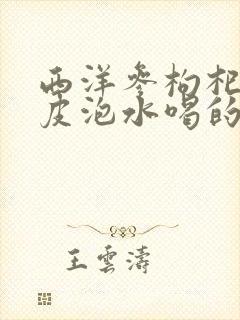 西洋参枸杞
皮泡水喝的
王雲濤